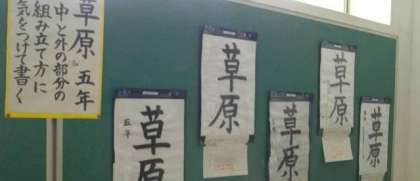 草原 五年
中と外の部分の
組み立て方に
気をつけて書く
草原
五年
草原
草原
草原
草原